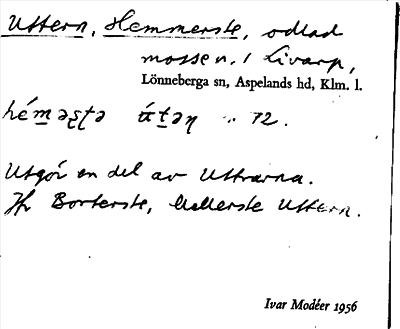 Uttern, Hemmerste, odlad
mosse n. i Livarp,
Lönneberga sn, Aspelands hd, Klm. l.
héməʂʈə ú̄təɳ .. 72.
Utgör en del av Uttrarna.
Jfr Borterste, Mellerste Uttern.
Ivar Modéer 1956